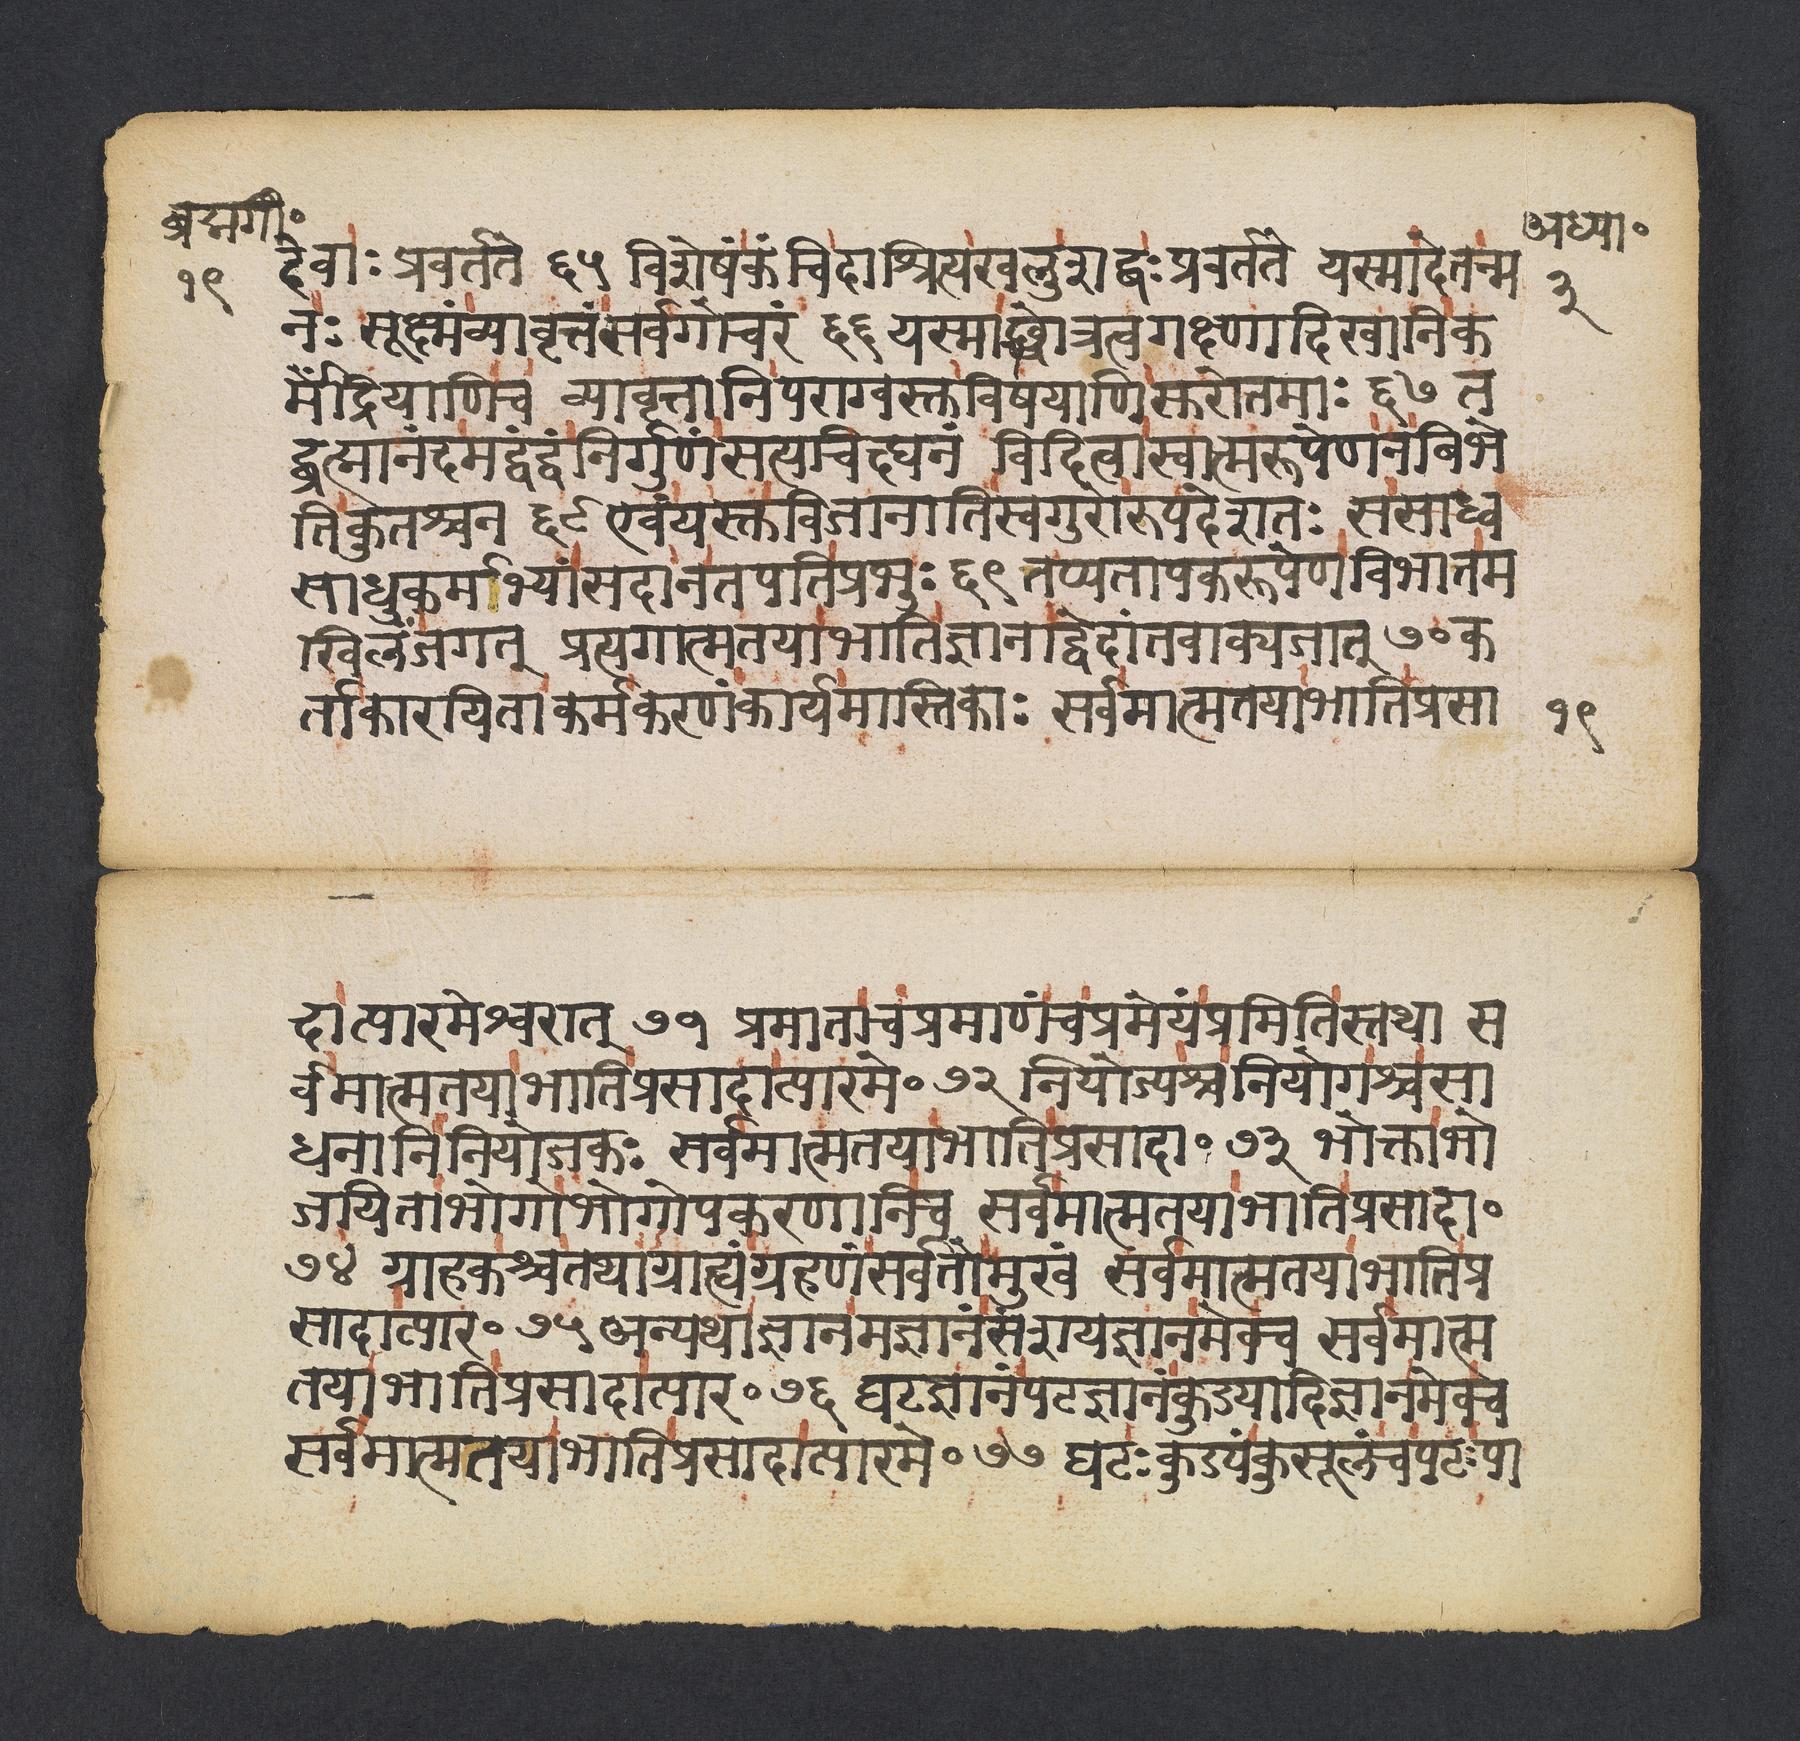 ब्रह्मगी॰
१९
अध्या॰
३
देवाः प्रवर्तते ६५ विशेषंकंचिदाश्रित्यखलुशब्दः प्रवर्तते यस्मादेतन्म
नः सूक्ष्मंव्यावृत्तंसर्वगोचरं ६६ यस्माच्छ्रोत्रत्वगक्ष्णादिखानिक
र्मेंद्रियाणिच व्यावृत्तानिपराग्वस्तुविषयाणिसुरोत्तमाः ६७ त
द्ब्रह्मानंदमद्वंद्वंनिर्गुणंसत्यचिद्घनं विदित्वास्वात्मरूपेणनबिभे
तिकुतश्चन ६८ एवंयस्तुविजानातिस्वगुरोरुपदेशतः ससाध्व
साधुकर्माभ्यांसदानतपतिप्रभुः ६९ तप्यतापकरूपेणविभातम
खिलंजगत् प्रत्यगात्मतयाभातिज्ञानाद्वेदांतवाक्यजात् ७० क
र्ताकारयिताकर्मकरणंकार्यमास्तिकाः सर्वमात्मतयाभातिप्रसा
१९
दात्पारमेश्वरात् ७१ प्रमाताचप्रमाणंचप्रमेयंप्रमितिस्तथा स
र्वमात्मतयाभातिप्रसादात्पारमे॰ ७२ नियोज्यश्चनियोगश्चसा
धनानिनियोजकः सर्वमात्मतयाभातिप्रसादा॰ ७३ भोक्ताभो
जयिताभोगोभोगोपकरणानिच सर्वमात्मतयाभातिप्रसादा॰
७४ ग्राहकश्चतथाग्राह्यंग्रहणंसर्वतोमुखं सर्वमात्मतयाभातिप्र
सादात्पार॰ ७५ अन्यथाज्ञानमज्ञानंसंशयज्ञानमेवच सर्वमात्म
तयाभातिप्रसादात्पार॰ ७६ घटज्ञानंपटज्ञानंकुड्यादिज्ञानमेवच
सर्वमात्मतयाभातिप्रसादात्पारमे॰ ७७ घटःकुड्यंकुसूलंचपटःपा